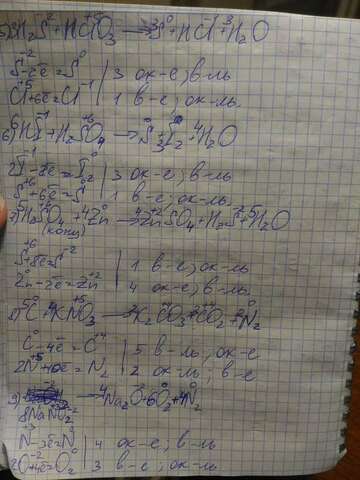 5) 3H₂S⁻² + HCl⁺⁵O₃ → 3S⁰ + HCl⁻¹ + 3H₂O
S⁻²-2ē=S⁰ | 3 ок-е; в-ль
Cl⁺⁵+6ē=Cl⁻¹ | 1 в-е; ок-ль
6) 6HI⁻¹ + H₂S⁺⁶O₄ → S⁰ + 3I₂⁰ + 4H₂O
2I⁻¹-2ē=I₂⁰ | 3 ок-е; в-ль
S⁺⁶+6ē=S⁰ | 1 в-е; ок-ль
7) 5H₂S⁺⁶O₄ + 4Zn⁰ → 4Zn⁺²SO₄ + H₂S⁻² + 4H₂O
(конц)
S⁺⁶+8ē=S⁻² | 1 в-е; ок-ль
Zn⁰-2ē=Zn⁺² | 4 ок-е; в-ль
8) 5C⁰ + 4KN⁺⁵O₃ → 2K₂CO₃ + 3CO₂ + 2N₂⁰
C⁰-4ē=C⁺⁴ | 5 в-ль; ок-е
2N⁺⁵+10ē=N₂⁰ | 2 ок-ль; в-е
9) → 4Na₂O + 6O₂⁰ + 4N₂⁰
8NaNO₂⁻²
| 4 ок-е; в-ль
2O⁻²+4ē=O₂⁰ | 3 в-е; ок-ль